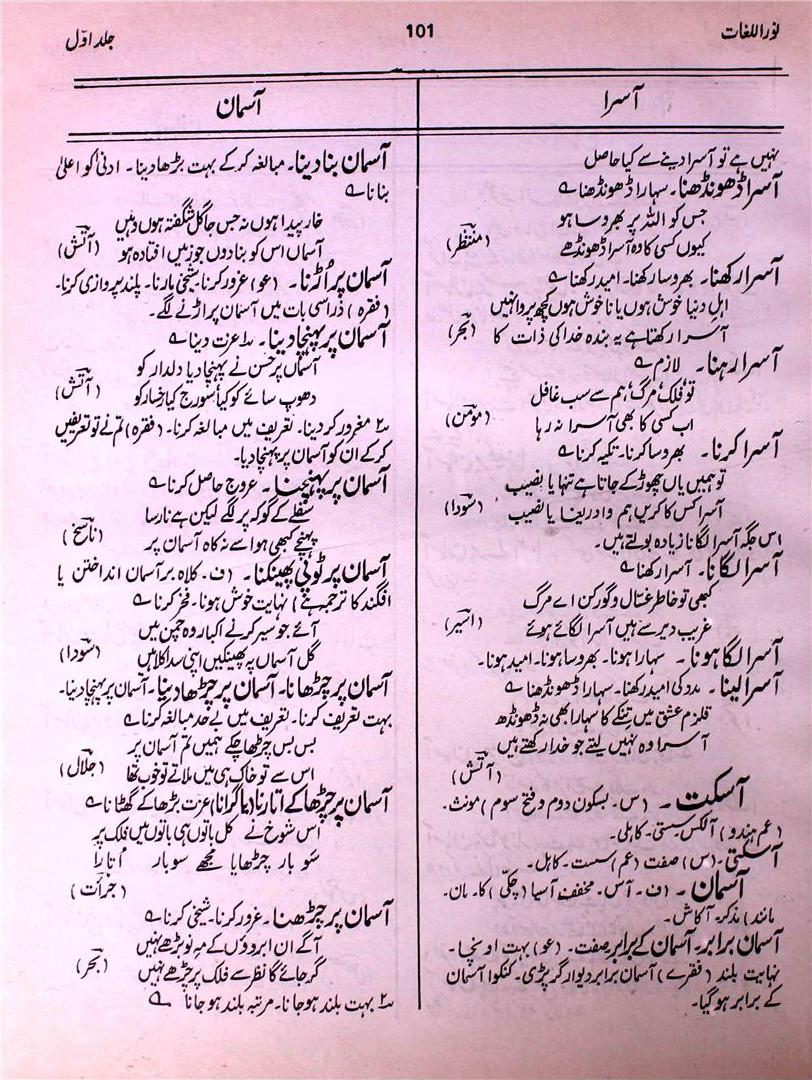 نور اللغات
101
جلد اوّل
آسرا
نہیں ہے تو آسرا دینے سے کیا حاصل
آسرا ڈھونڈھنا۔ سہارا ڈھونڈھنا ؎
جس کو اللہ پر بھروسا ہو
کیوں کسی کا وہ آسرا ڈھونڈھے (منتظر)
آسرا رکھنا۔ بھروسا رکھنا۔ امید رکھنا ؎
اہلِ دنیا خوش ہوں یا ناخوش ہوں کچھ پروا نہیں
آسرا رکھتا ہے یہ بندہ خدا کی ذات کا (بحر)
آسرا رہنا۔ لازم ؎
تو، فلک، مرگ، ہم سے سب غافل
اب کسی کا بھی آسرا نہ رہا (مومن)
آسرا کرنا۔ بھروسا کرنا۔ تکیہ کرنا ؎
تو ہمیں یاں چھوڑ کے جاتا ہے تنہا یا نصیب
آسرا کس کا کریں ہم وا دریغا یا نصیب (سودا)
اس جگہ آسرا لگانا زیادہ بولتے ہیں۔
آسرا لگانا۔ آسرا رکھنا ؎
کبھی تو خاطر غسال و گور کن اے مرگ
غریب دیر سے ہیں آسرا لگائے ہوئے (اسیر)
آسرا لگا ہونا۔ سہارا ہونا۔ بھروسا ہونا۔ امید ہونا۔
آسرا لینا۔ مدد کی امید رکھنا۔ سہارا ڈھونڈھنا ؎
قلزم عشق میں تنکے کا سہارا بھی نہ ڈھونڈھ
آسرا وہ نہیں لیتے جو خدا رکھتے ہیں
(آتش)
آسکت۔ (س۔ بسکون دوم و فتح سوم) مونث۔
(عم ہندو) آلکس۔ سستی۔ کاہلی۔
آسکتی۔ (س) صفت (عم) سست۔ کاہل۔
آسمان۔ (ف۔ آس۔ مخفف آسیا (چکّی) کا۔ مان۔
مانند) مذکر۔ آکاش۔
آسمان برابر۔ آسمان کے برابر۔ صفت۔ (عو) بہت اونچا۔
نہایت بلند (فقرے) آسمان برابر دیوار گر پڑی۔ کنکوا آسمان
کے برابر ہو گیا۔
آسمان
آسمان بنا دینا۔ مبالغہ کر کے بہت بڑھا دینا۔ ادنیٰ کو اعلیٰ
بنانا ؎
خار پیدا ہوں نہ جس جا گل شگفتہ ہوں وہیں
آسماں اس کو بنا دوں جو زمیں افتادہ ہو (آتش)
آسمان پر اُڑنا۔ (عو) غرور کرنا۔ شیخی مارنا۔ بلند پروازی کرنا۔
(فقرہ) ذرا سی بات میں آسمان پر اڑنے لگے۔
آسمان پر پہنچا دینا۔ ؀۱ عزت دینا ؎
آسماں پر حسن نے پہنچا دیا دلدار کو
دھوپ سائے کو کیا سورج کیا رخسار کو (آتش)
؀۲ مغرور کر دینا۔ تعریف میں مبالغہ کرنا۔ (فقرہ) تم نے تو تعریفیں
کر کے ان کو آسمان پر پہنچا دیا۔
آسمان پر پہنچنا۔ عروج حاصل کرنا ؎
سفلے کے گو کہ پر لگے لیکن ہے نارسا
پہنچے کبھی ہوا سے نہ کاہ آسمان پر (ناسخ)
آسمان پر ٹوپی پھینکنا۔ (ف۔ کلاہ بر آسمان انداختن یا
افگند کا ترجمہ ہے) نہایت خوش ہونا۔ فخر کرنا ؎
آئے جو سیر کرنے اکبار وہ چمن میں
گل آسماں پہ پھینکیں اپنی سدا کلاہیں (سودا)
آسمان پر چڑھانا۔ آسمان پر چڑھا دینا۔ آسمان پر پہنچا دینا۔
بہت تعریف کرنا۔ تعریف میں بے حد مبالغہ کرنا ؎
بس بس چڑھا چکے ہمیں تم آسمان پر
اس سے تو خاک ہی میں ملاتے تو خوب تھا (جلال)
آسمان پر چڑھا کے اتارنا (یا گرانا) عزت بڑھا کے گھٹانا ؎
اس شوخ نے کل باتوں ہی باتوں میں فلک پر
سو بار چڑھایا مجھے سو بار اتارا
(جرأت)
آسمان پر چڑھنا۔ غرور کرنا۔ شیخی کرنا ؎
آگے ان ابروؤں کے مہِ نو بڑھے نہیں
گر جائے گا نظر سے فلک پر چڑھے نہیں (بحر)
؀۲ بہت بلند ہو جانا۔ مرتبہ بلند ہو جانا ؎